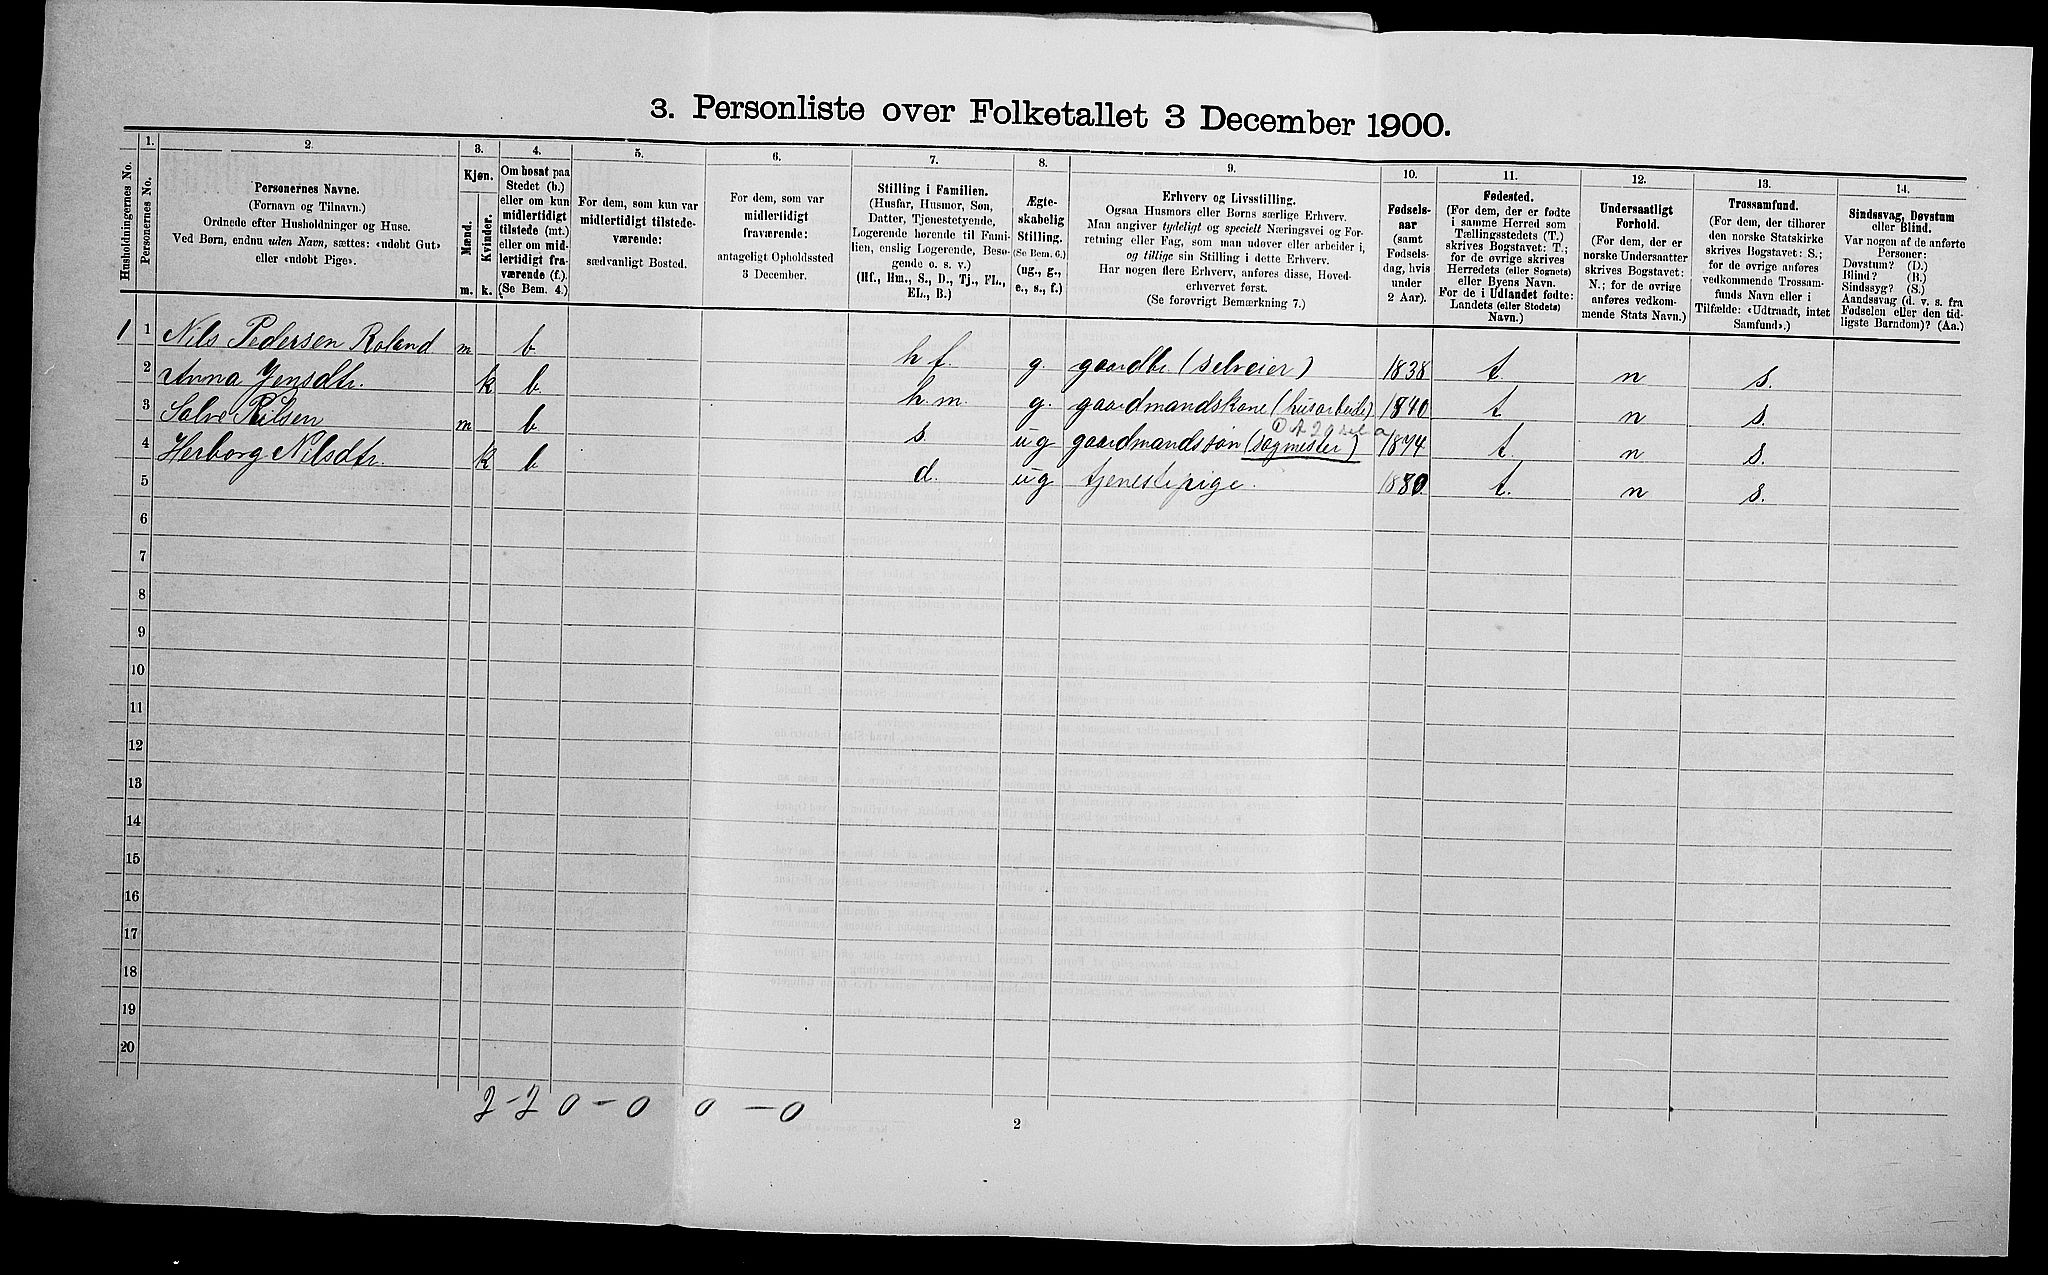 3. Personliste over Folketallet 3 December 1900.
Husholdningernes No.
1.
Personernes No.
2.
Personernes Navne.
(Fornavn og Tilnavn.)
Ordnede efter Husholdninger og Huse.
Ved Børn, endnu uden Navn, sættes: «udøbt Gut»
eller «udøbt Pige».
3.
Kjøn.
Mænd.
Kvinder.
m.
k.
4.
Om bosat paa
Stedet (b.)
eller om kun
midlertidigt
tilstede (mt.)
eller om mid-
lertidigt fra-
værende (f.).
(Se Bem. 4.)
5.
For dem, som kun var
midlertidigt tilstede-
værende:
sædvanligt Bosted.
6.
For dem, som var
midlertidigt
fraværende:
antageligt Opholdssted
3 December.
7.
Stilling i Familien.
(Husfar, Husmor, Søn,
Datter, Tjenestetyende,
Logerende hørende til Fami-
lien, enslig Logerende, Beso-
gende o. s. v.)
(Hf., Hm., S., D., Tj., FL.,
EL., B.)
8.
Ægte-
skabelig
Stilling.
(Se Bem. 6.)
(ug., g.,
e., s., f.)
9.
Erhverv og Livsstilling.
Ogsaa Husmors eller Børns særlige Erhverv.
Man angiver tydeligt og specielt Næringsvei og For-
retning eller Fag, som man udøver eller arbeider i,
og tillige sin Stilling i dette Erhverv.
Har nogen flere Erhverv, anføres disse, Hoved-
erhvervet først.
(Se forøvrigt Bemærkning 7.)
10.
Fødsels-
aar
(samt
Fødsels-
dag, hvis
under
2 Aar).
11.
Fødested.
(For dem, der er fødte
i samme Herred som
Tællingsstedets (T.)
skrives Bogstavet: T.;
for de øvrige skrives
Herredets (eller Sognets)
eller Byens Navn.
For de i Udlandet fødte:
Landets (eller Stedets)
Navn.)
12.
Undersaatligt
Forhold.
(For dem, der er
norske Undersaatter
skrives Bogstavet:
N.; for de øvrige
anføres vedkom-
mende Stats Navn.)
13.
Trossamfund.
(For dem, der tilhører
den norske Statskirke
skrives Bogstavet: S.;
for de øvrige anføres
vedkommende Trossam-
funds Navn eller i
Tilfælde: «Udtraadt, intet
Samfund».)
14.
Sindssvag, Døvstum
eller Blind.
Var nogen af de anførte
Personer:
Døvstum? (D.)
Blind? (B.)
Sindssyg? (S.)
Aandssvag (d. v. s. fra
Fødselen eller den tid-
ligste Barndom)? (Aa.)
1 1 Nils Pedersen Roland m b h f. g. gaardbr. (selveier) 1838 t. n s.
2 Anna Jensdtr. k b h.m. g. gaardmandskone (husarbeide) 1840 t n s.
3 Salve Nilsen m b s. ug gaardmandssøn (sagmester) 1874 t. n s.
4 Herborg Nilsdtr. k b d. ug tjenestepige. 1880. t. n s.
5
6
7
8
9
10
11
12
13
14
15
16
17
18
19
20
2-2 0-0 0-0
2